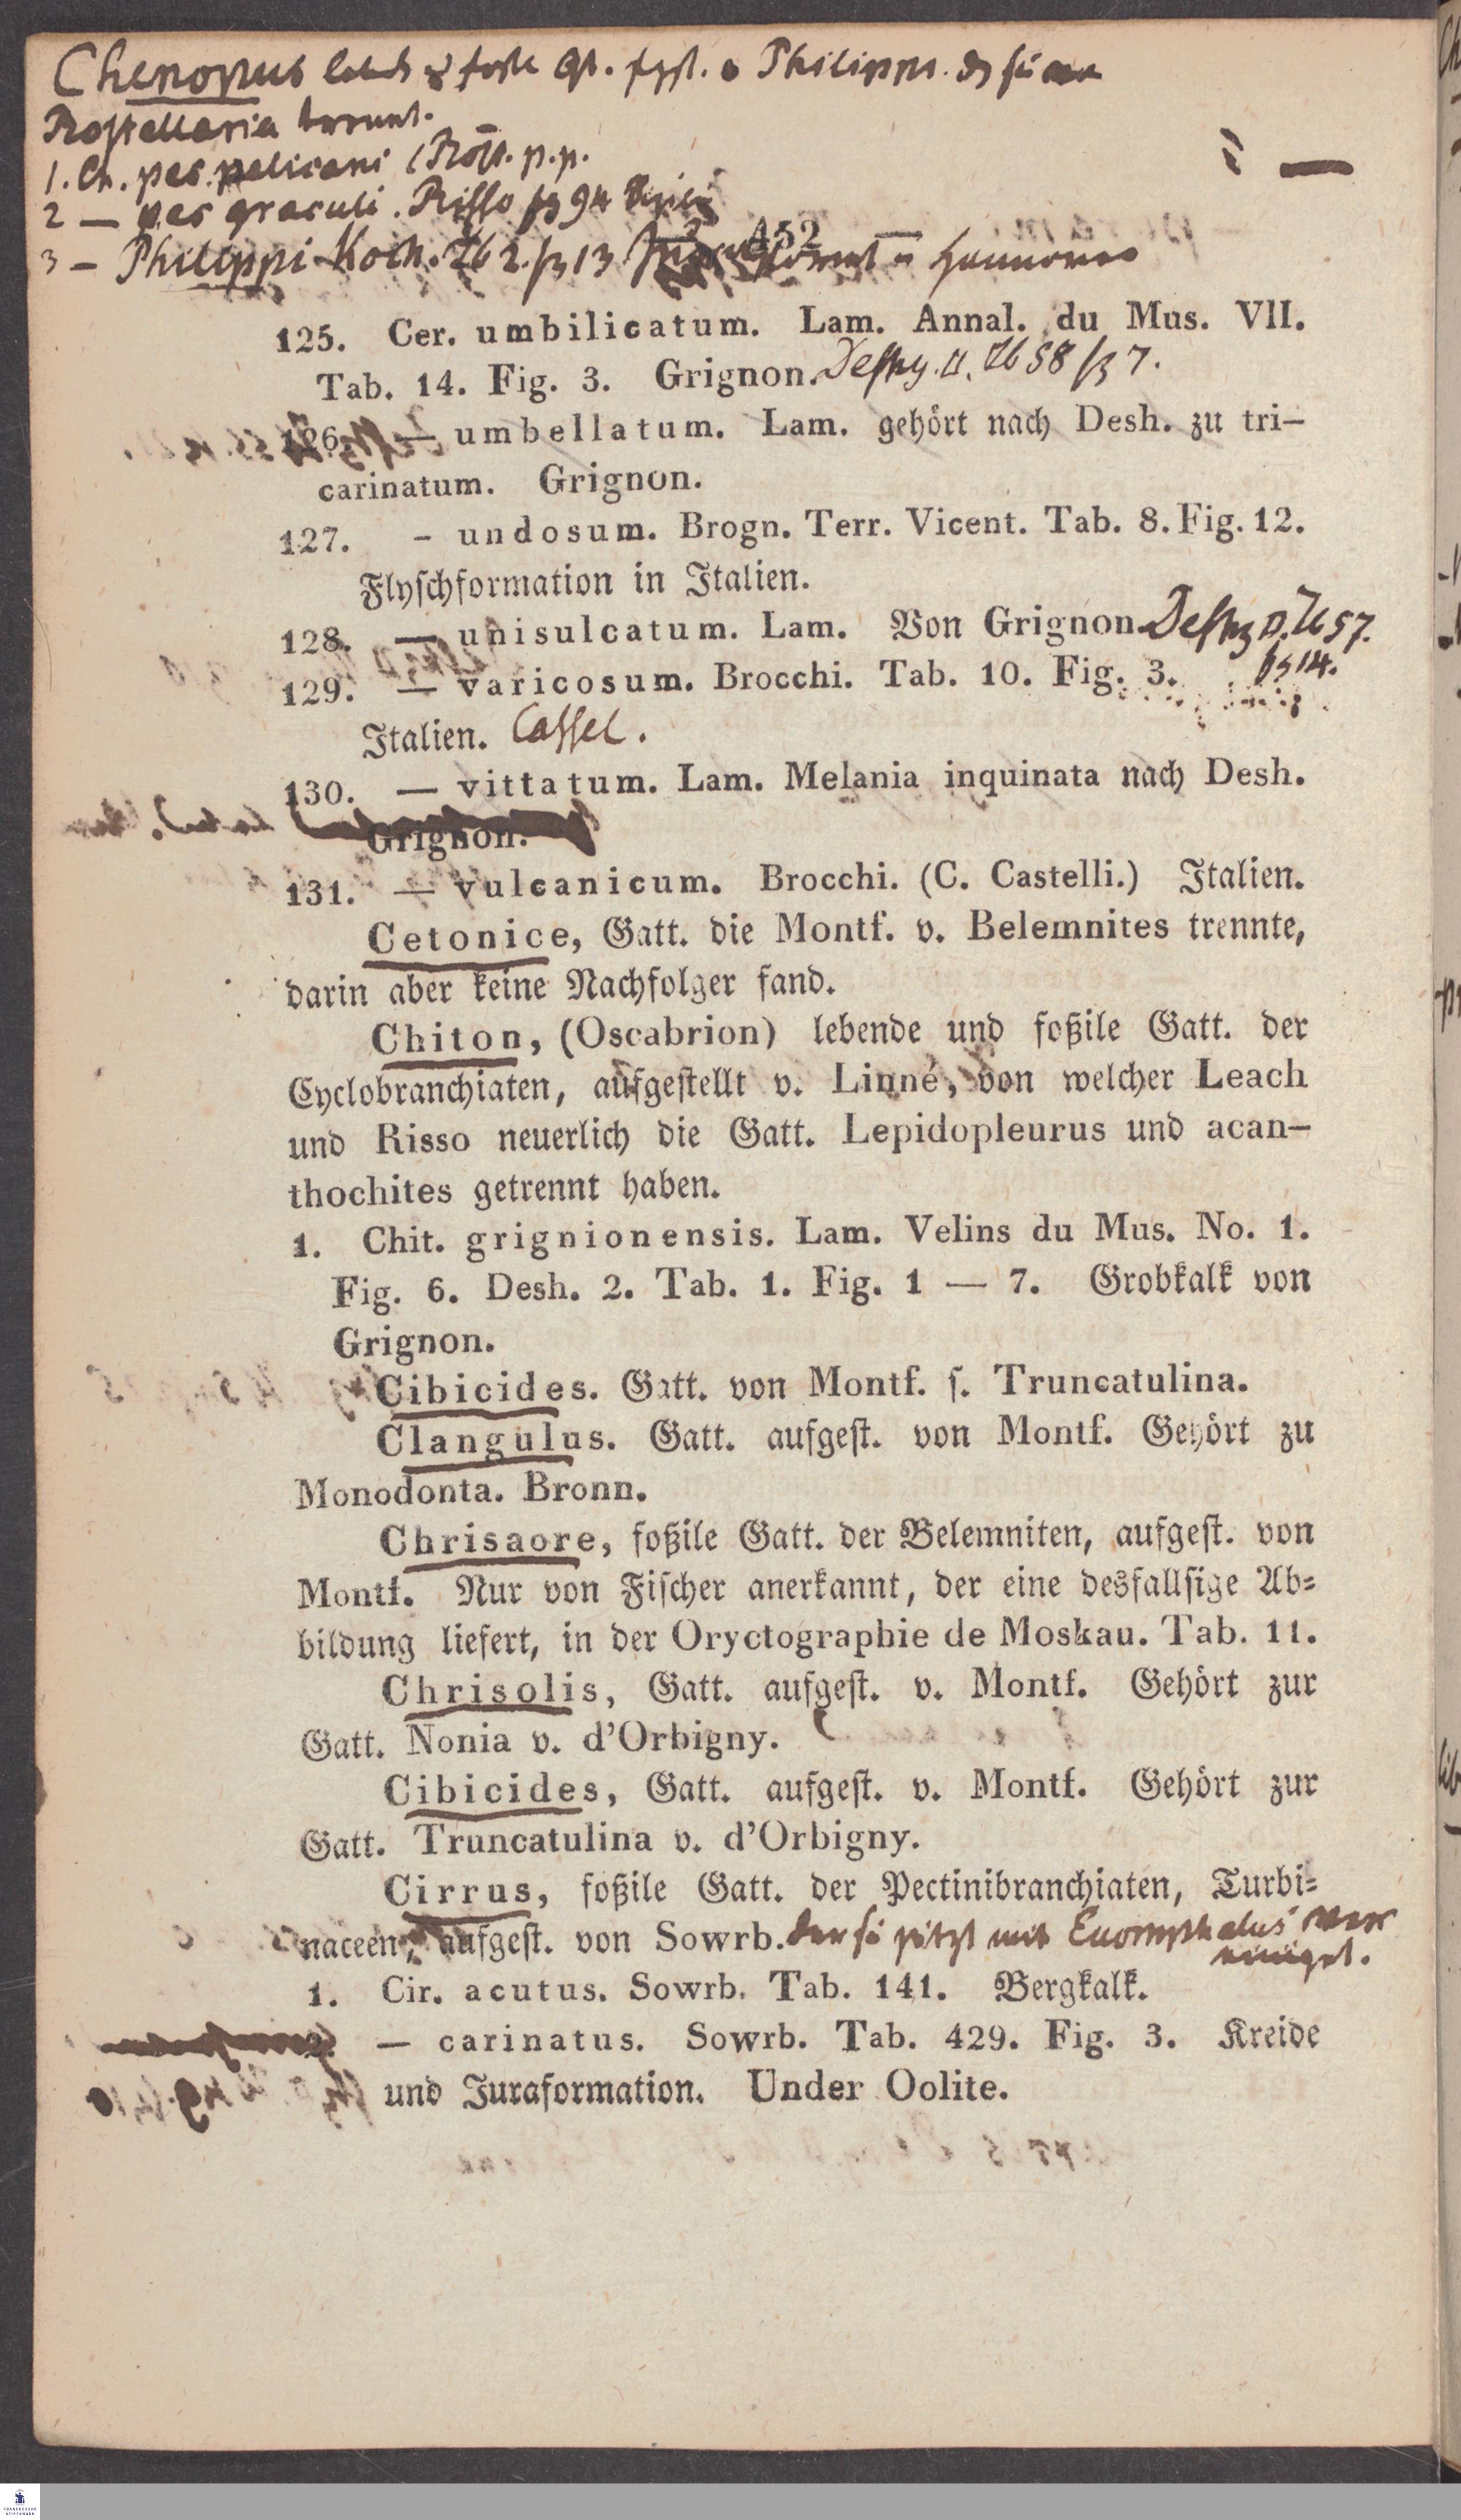 Chenopus
Rostellaria
1. Ch. pes pelicani
2 — pes graculi. Risso
3 — Philippi Koch.
— 152 —
125. Cer. umbilicatum. Lam. Annal. du Mus. VII.
Tab. 14. Fig. 3. Grignon. Deshy. II. Tb 58 fg 7.
126. — umbellatum. Lam. gehört nach Desh. zu tri–
carinatum. Grignon.
127. - undosum. Brogn. Terr. Vicent. Tab. 8. Fig. 12.
Flyschformation in Italien.
128. — unisulcatum. Lam. Von Grignon
129. — varicosum. Brocchi. Tab. 10. Fig. 3.
Italien. Cassel.
130. — vittatum. Lam. Melania inquinata nach Desh.
Grignon.
131. — vulcanicum. Brocchi. (C. Castelli.) Italien.
Cetonice, Gatt. die Montf. v. Belemnites trennte,
darin aber keine Nachfolger fand.
Chiton, (Oscabrion) lebende und foßile Gatt. der
Cyclobranchiaten, aufgestellt v. Linné, von welcher Leach
und Risso neuerlich die Gatt. Lepidopleurus und acan–
thochites getrennt haben.
1. Chit. grignionensis. Lam. Velins du Mus. No. 1.
Fig. 6. Desh. 2. Tab. 1. Fig. 1 — 7. Grobkalk von
Grignon.
Cibicides. Gatt. von Montf. s. Truncatulina.
Clangulus. Gatt. aufgest. von Montf. Gehört zu
Monodonta. Bronn.
Chrisaore, foßile Gatt. der Belemniten, aufgest. von
Montf. Nur von Fischer anerkannt, der eine desfallsige Ab-
bildung liefert, in der Oryctographie de Moskau. Tab. 11.
Chrisolis, Gatt. aufgest. v. Montf. Gehört zur
Gatt. Nonia v. d'Orbigny.
Cibicides, Gatt. aufgest. v. Montf. Gehört zur
Gatt. Truncatulina v. d'Orbigny.
Cirrus, foßile Gatt. der Pectinibranchiaten, Turbi-
naceen, aufgest. von Sowrb. jetzt mit Euomphalus ver
einigt.
1. Cir. acutus. Sowrb. Tab. 141. Bergkalk.
2. — carinatus. Sowrb. Tab. 429. Fig. 3. Kreide
und Juraformation. Under Oolite.
FRANCKESCHE
STIFTUNGEN